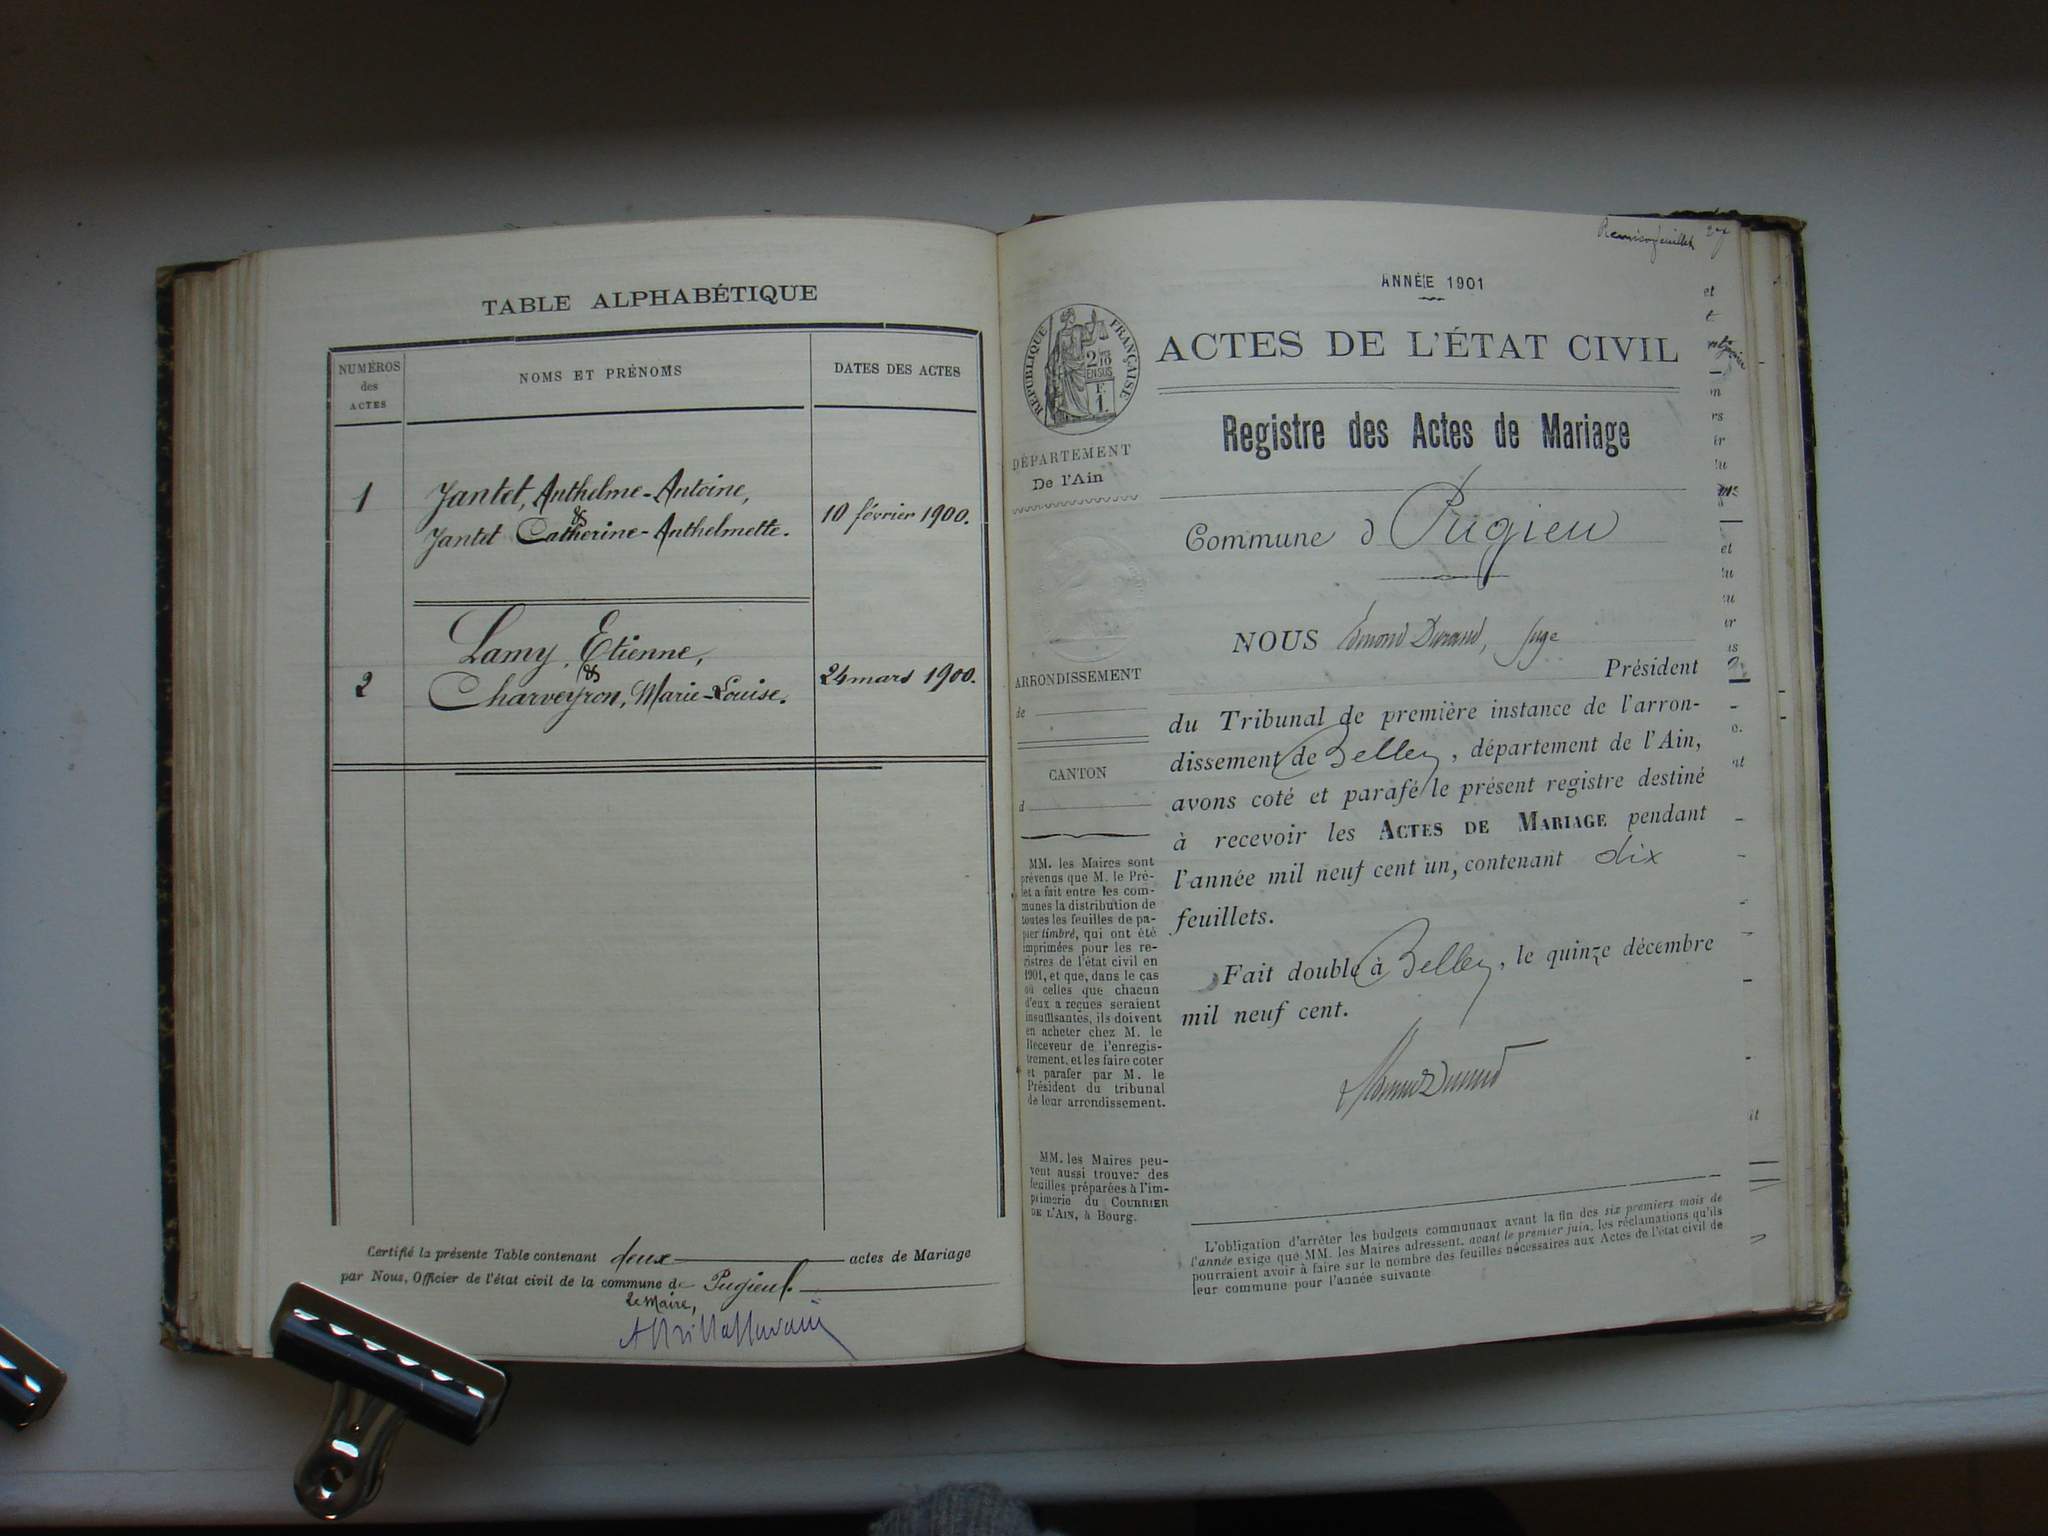 TABLE ALPHABÉTIQUE
NUMÉROS
des
ACTES
NOMS ET PRÉNOMS
DATES DES ACTES
1
Jantet, Anthelme-Antoine,
&
Jantet Catherine-Anthelmette.
10 février 1900.
2
Lamy, Etienne,
&
Charveyron, Marie-Louise.
24 mars 1900.
Certifié la présente Table contenant deux actes de Mariage
par Nous, Officier de l'état civil de la commune de Pugieu.
Le Maire,
feuillet
ANNÉE 1901
RÉPUBLIQUE FRANÇAISE
ACTES DE L'ÉTAT CIVIL
Registre des Actes de Mariage
DÉPARTEMENT
De l'Ain
Commune d Pugieu
NOUS Edmond Durand, Juge
Président
du Tribunal de première instance de l'arron-
dissement de Belley, département de l'Ain,
avons coté et parafé le présent registre destiné
à recevoir les ACTES DE MARIAGE pendant
l'année mil neuf cent un, contenant dix
feuillets.
Fait double à Belley, le quinze décembre
mil neuf cent.
ARRONDISSEMENT
de
CANTON
d
MM. les Maires sont
prévenus que M. le Pré-
fet a fait entre les com-
munes la distribution de
toutes les feuilles de pa-
pier timbré, qui ont été
imprimées pour les re-
gistres de l'état civil en
1901, et que, dans le cas
où celles que chacun
d'eux a reçues seraient
insuffisantes, ils doivent
en acheter chez M. le
Receveur de l'enregis-
trement, et les faire coter
et parafer par M. le
Président du tribunal
de leur arrondissement.
MM. les Maires peu-
vent aussi trouver des
feuilles préparées à l'im-
primerie du COURRIER
DE L'AIN, à Bourg.
L'obligation d'arrêter les budgets communaux avant la fin des six premiers mois de
l'année exige que MM. les Maires adressent, avant le premier juin, les réclamations qu'ils
pourraient avoir à faire sur le nombre des feuilles nécessaires aux Actes de l'état civil de
leur commune pour l'année suivante